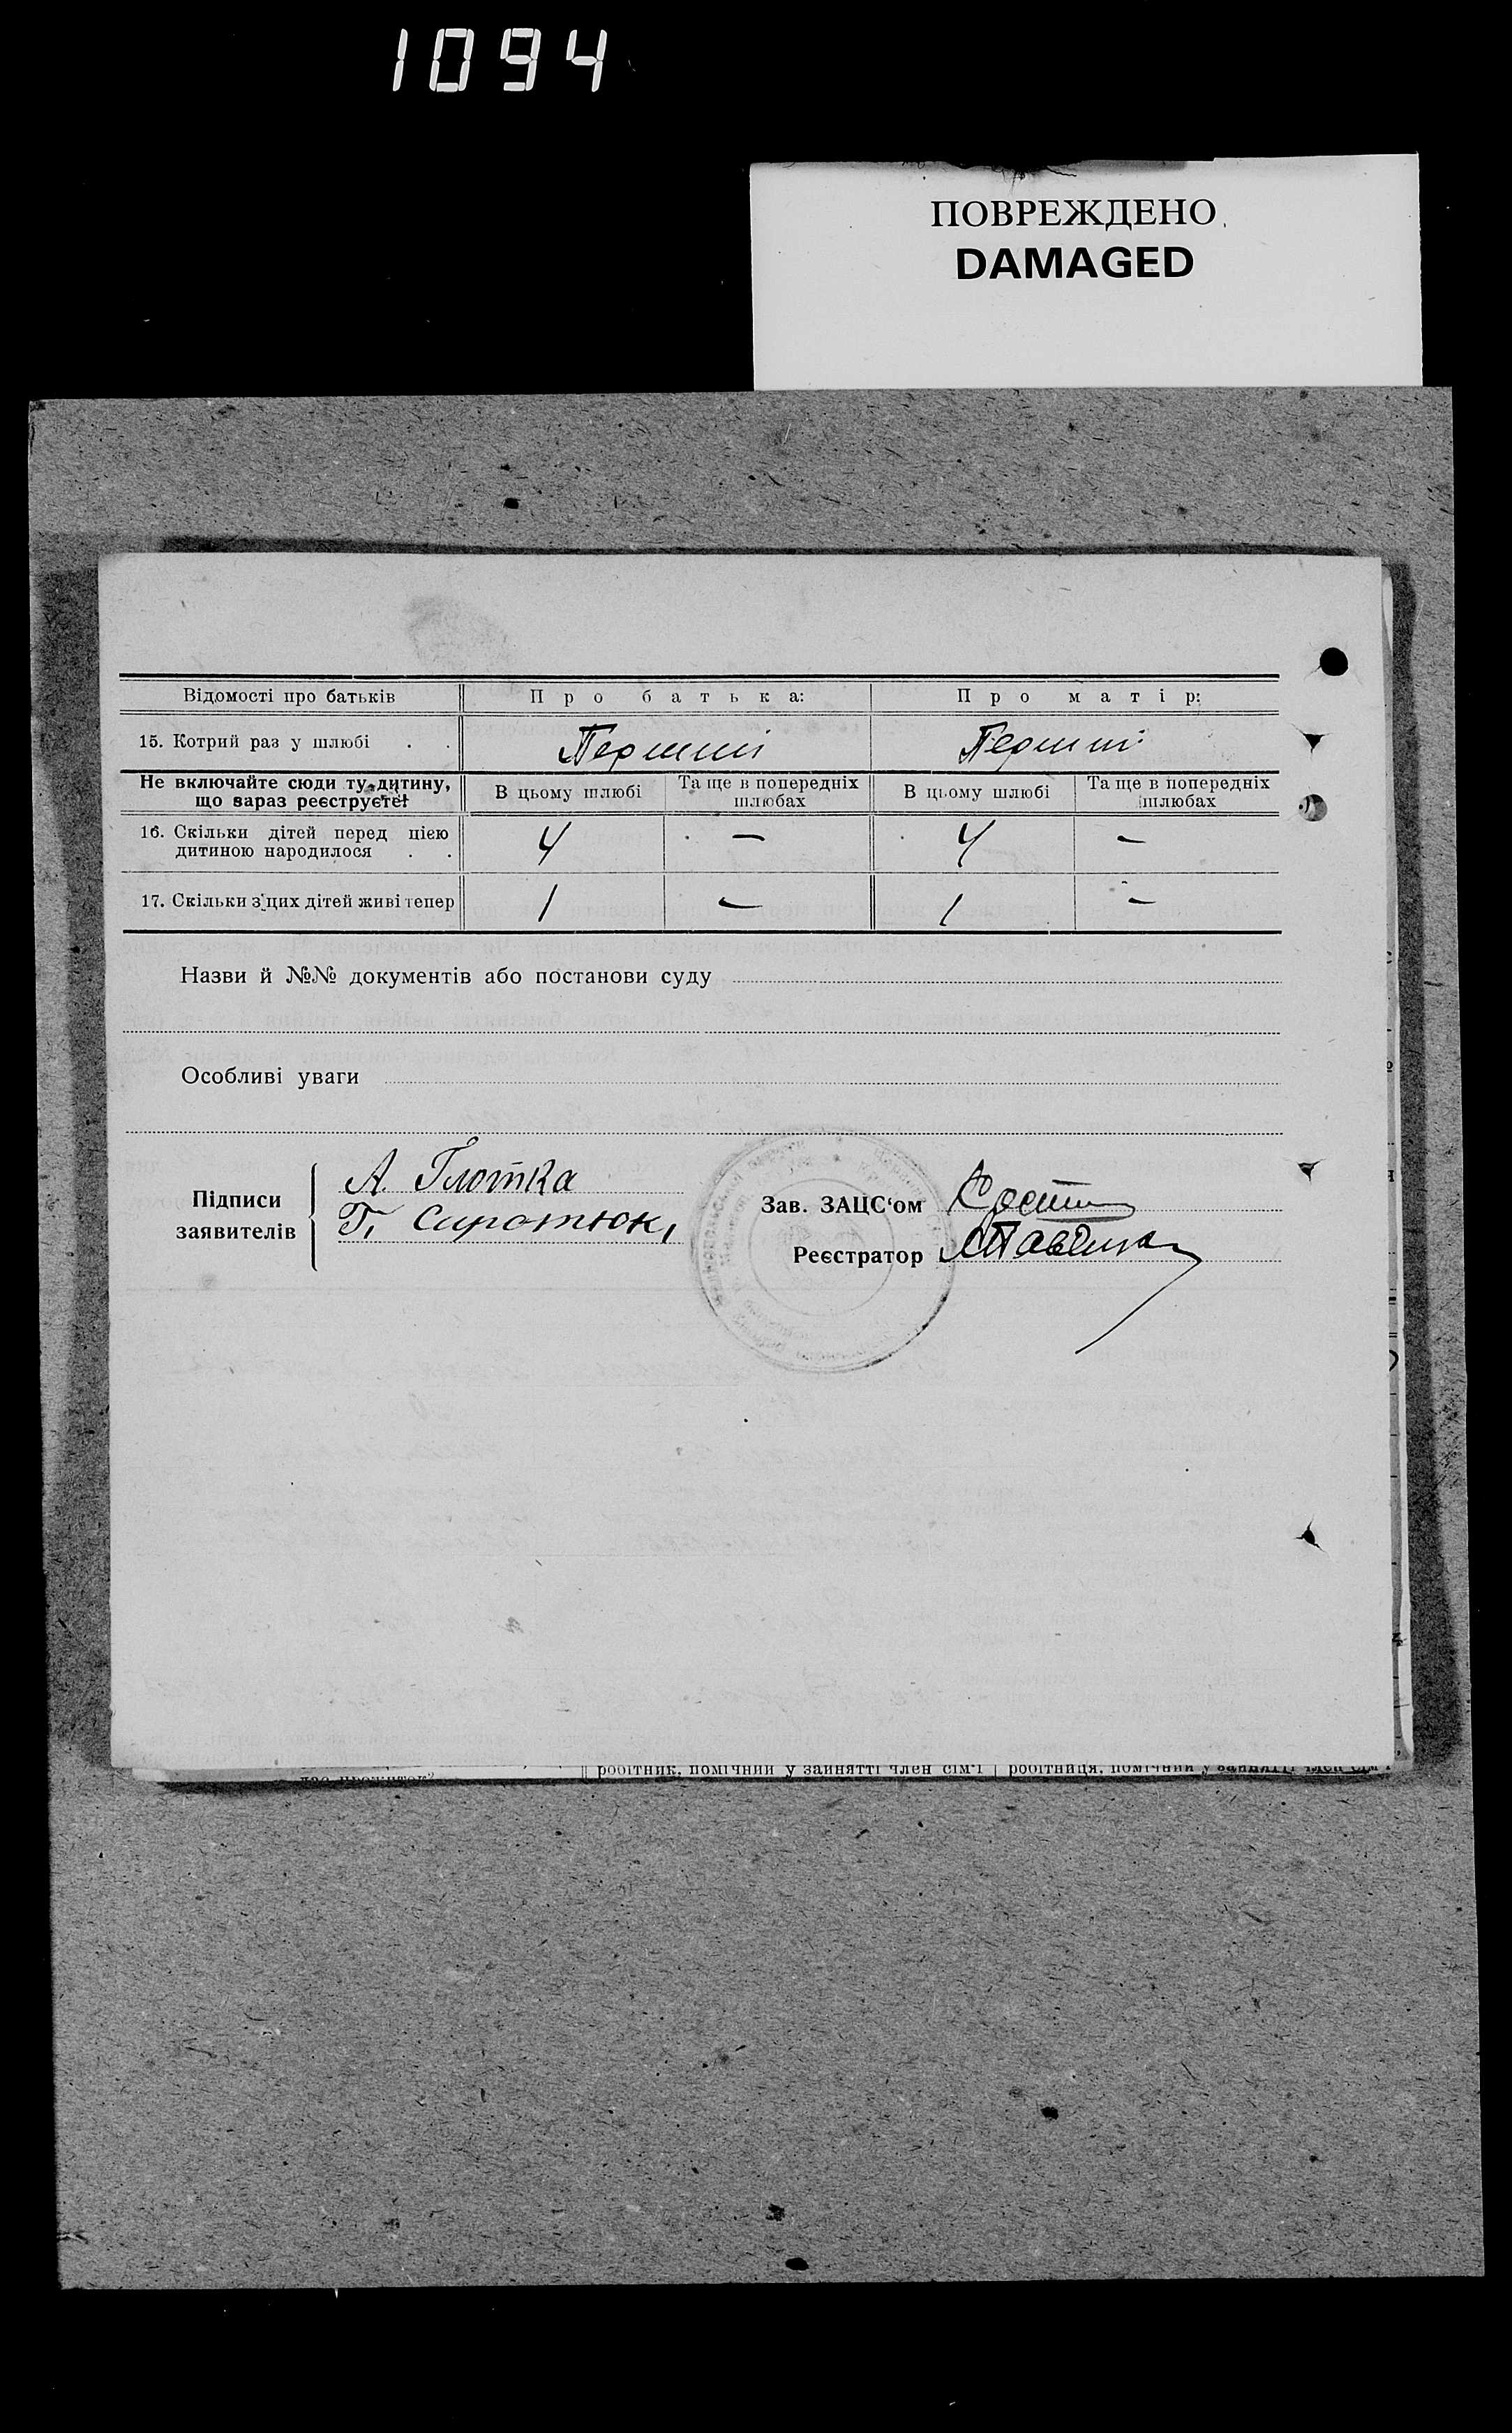 1094
ПОВРЕЖДЕНО
DAMAGED
Відомості про батьків
Про батька:
Про матір:
15. Котрий раз у шлюбі . .
Перший
Перший
Не включайте сюди ту дитину,
що зараз реєструєте!
В цьому шлюбі
Та ще в попередніх
шлюбах
В цьому шлюбі
Та ще в попередніх
шлюбах
16. Скільки дітей перед цією
дитиною народилося . .
4
—
4
—
17. Скільки з цих дітей живі тепер
1
—
1
—
Назви й №№ документів або постанови суду
Особливі уваги
Підписи
заявителів
А. Глотка
Г. Сиротюк
Зав. ЗАЦС‘ом
Реєстратор
робітник, помічний у занятті член сім'ї
робітниця, помічний у занятті член сім'ї